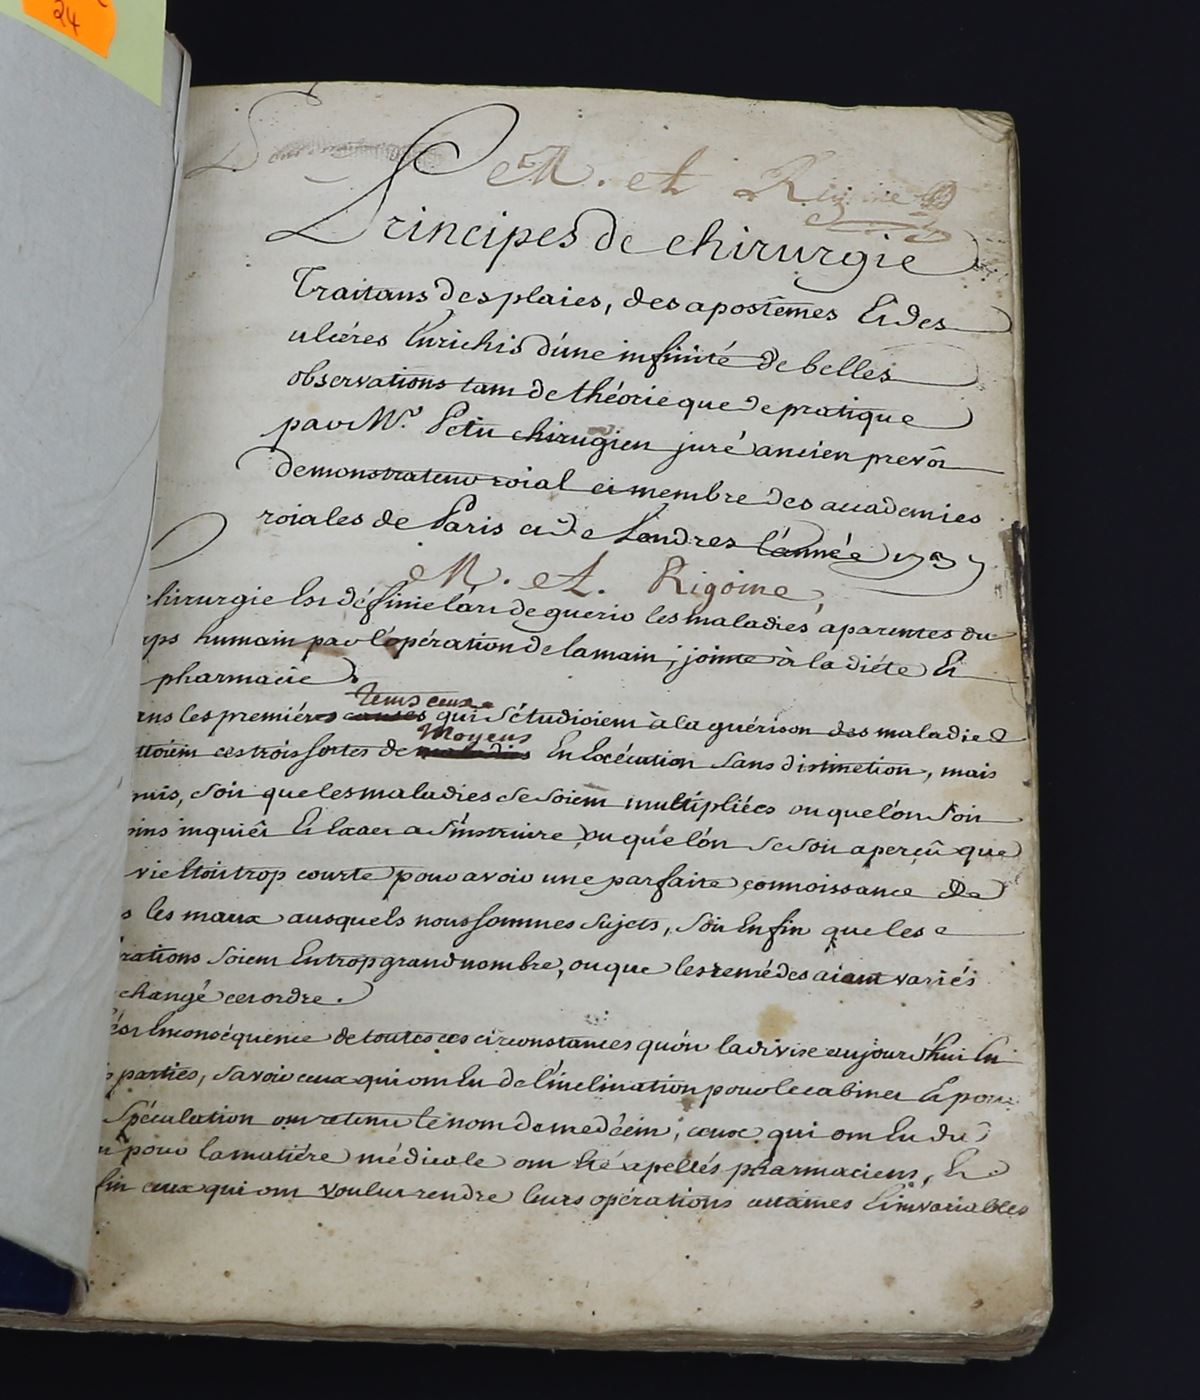 24
M. et Rigoine
Principes de chirurgie
Traitans des plaies, des apostêmes Et des
ulcéres Enrichis d'une infinité de belles
observations tant de théorie que de pratique
par Mr. Petit chirugien juré ancien prevôt
demonstrateur roial et membre des academies
roiales de Paris et de Londres l'année 1737
M. et. Rigoine,
chirurgie Est définie l'art de guerir les maladies aparentes du
rps humain par l'opération de la main, jointe à la diéte Et
pharmacie.
tems ceux
ans les premiérs causes qui s'étudioient à la guérison des maladies
Moyens
ttoient ces trois sortes de maladies En Exécution sans distinction, mais
puis, soit que les maladies se soient multipliées ou que l'on soit
oins inquiêt Et Exact a s'instruire, ou qu'e l'on se soit aperçû que
vie Etoit trop courte pour avoir une parfaite connoissance de
s les maux ausquels nous sommes sujets, soit Enfin que les
rations soient En trop grand nombre, ou que les remédes aiant variés
changé cet ordre.
ést En conséquence de toutes ces circonstances qu'on la divise aujourd'hui En
s parties, savoir ceux qui ont Eu de l'inclination pour le cabinet Et pour
spéculation ont retenu le nom de medécin; ceux qui ont Eu du
t pour la matiére médicale ont Eté apellés pharmaciens, Et
fin ceux qui ont voulut rendre leurs opérations certaines Et invariables